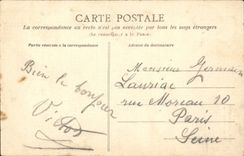 CARTE POSTALE
La correspondance au recto n'est pas acceptée par tous les pays étrangers
(Se renseigner à la Poste)
Partie réservée à la correspondance
Adresse du destinataire
Bien le bonjour
Monsieur Germain
Lauriac
rue Moreau 20
Paris
Seine